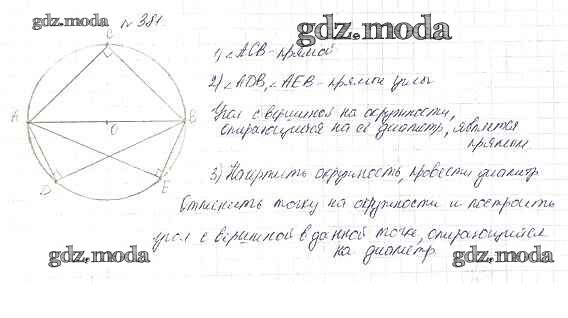 gdz.moda
№ 381
gdz.moda
C
A
O
B
D
E
1) ∠ACB - прямой
2) ∠ADB, ∠AEB - прямые углы
Угол с вершиной на окружности,
опирающийся на её диаметр, является
прямым
3) Начертить окружность, провести диаметр
Отметить точку на окружности и построить
угол с вершиной в данной точке, опирающийся
на диаметр
gdz.moda
gdz.moda